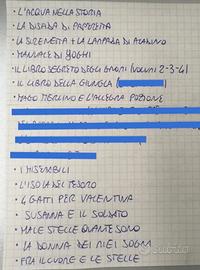 • L'ACQUA NELLA STORIA
• LA DISFIDA DI
• LA SIRENETTA + LA LAMPADA DI ALADINO
• MANUALE DI YOGHI
• IL LIBRO SEGRETO DEGLI GNOMI (VOLUMI 2-3-4)
• IL LIBRO DELLA GIUNGLA
• MAGO MERLINO E L'ALLEGRA POZIONE
• I MISERABILI
• L'ISOLA DEL TESORO
• 4 GATTI PER VALENTINA
• SUSANNA E IL SOLDATO
• MALE STELLE QUANTE SONO
• LA DONNA DEI MIEI SOGNI
• FRA IL CUORE E LE STELLE
subito